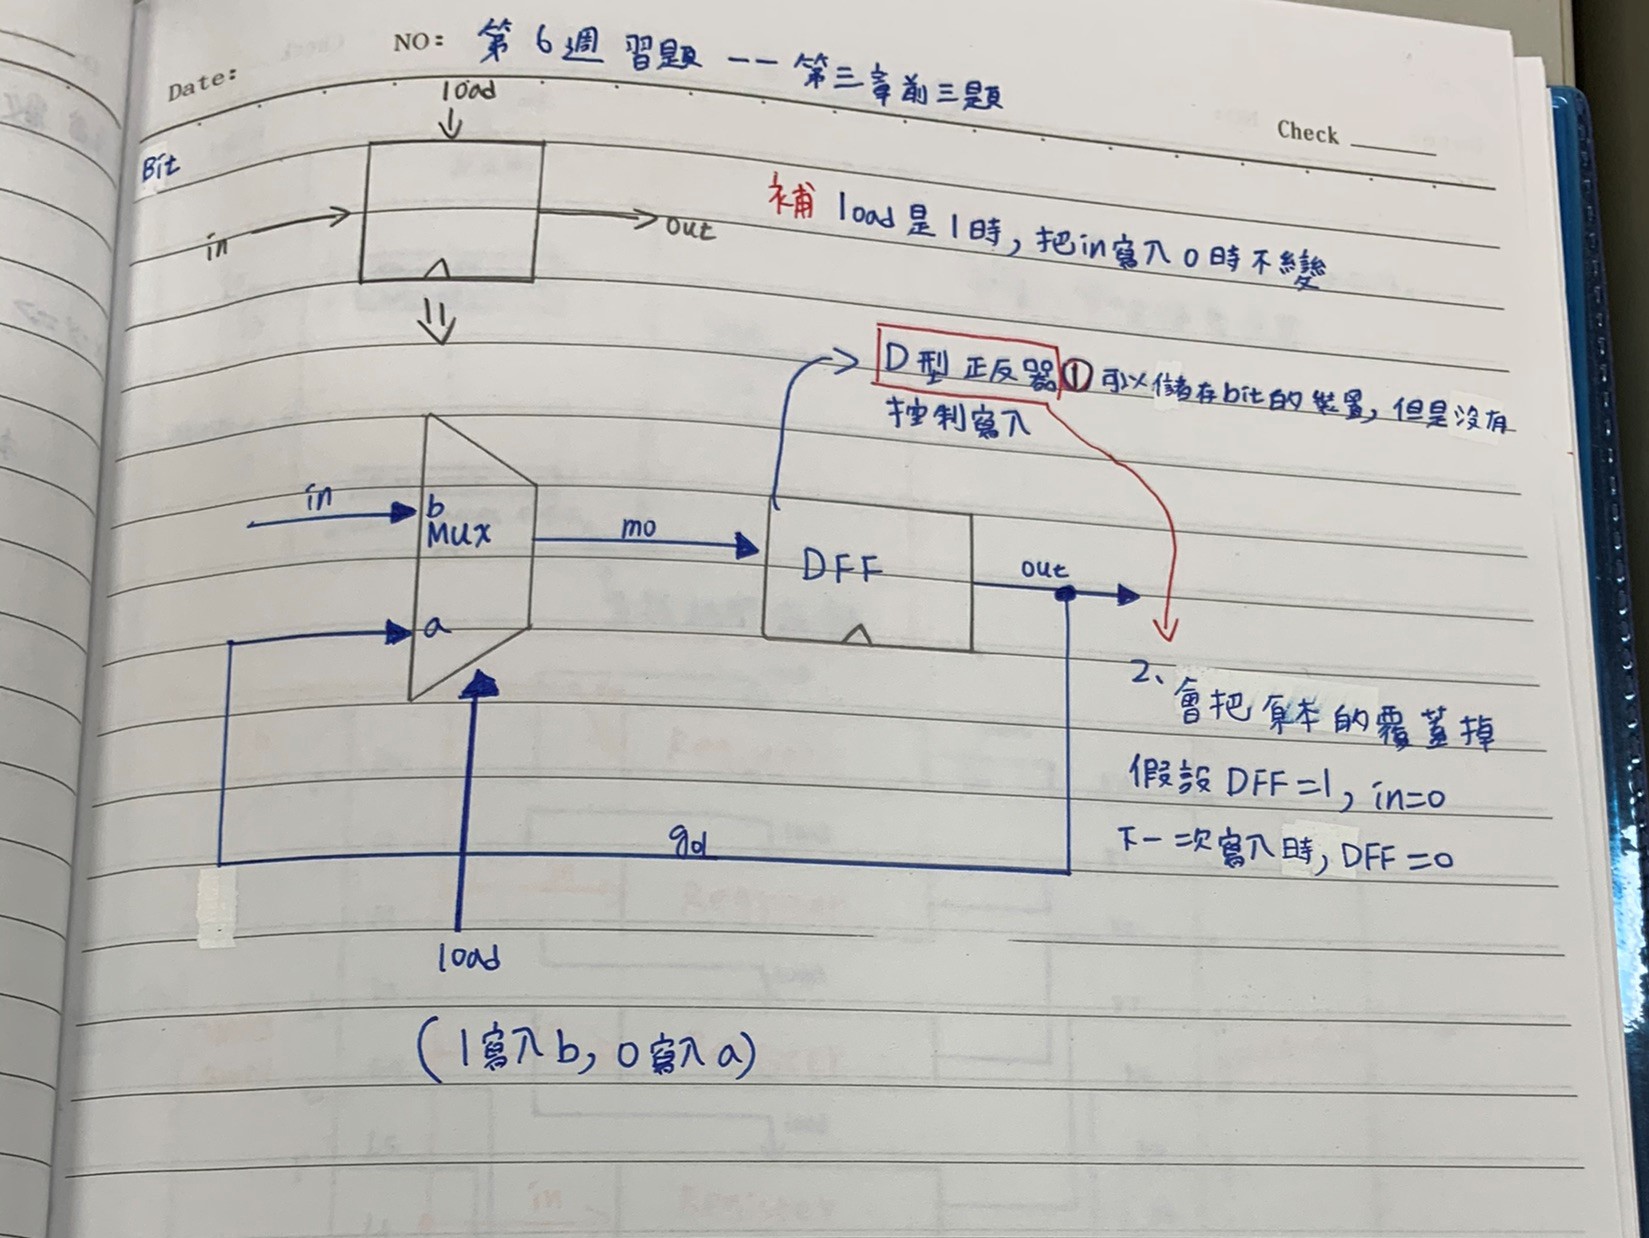 NO: 第6週 習題 -- 第三章前三題
Date:
Check
load
Bit
in
out
補 load是1時,把in寫入 0時不變
D型正反器 ① 可以儲存bit的裝置,但是沒有
控制寫入
in
b
MUX
mo
DFF
out
a
2、會把原本的覆蓋掉
假設DFF=1, in=0
下一次寫入時, DFF=0
load
(1寫入b, 0寫入a)